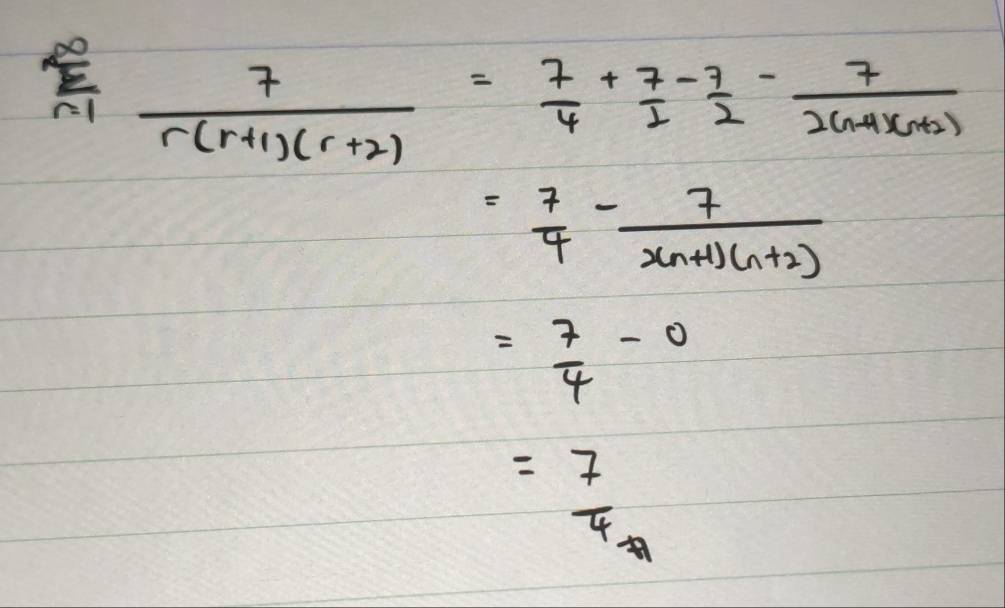 ∞ Σ r=1 7/(r(r+1)(r+2)) = 7/4 + 7/2 - 7/2 - 7/(2(n+1)(n+2))
= 7/4 - 7/(2(n+1)(n+2))
= 7/4 - 0
= 7/4 #